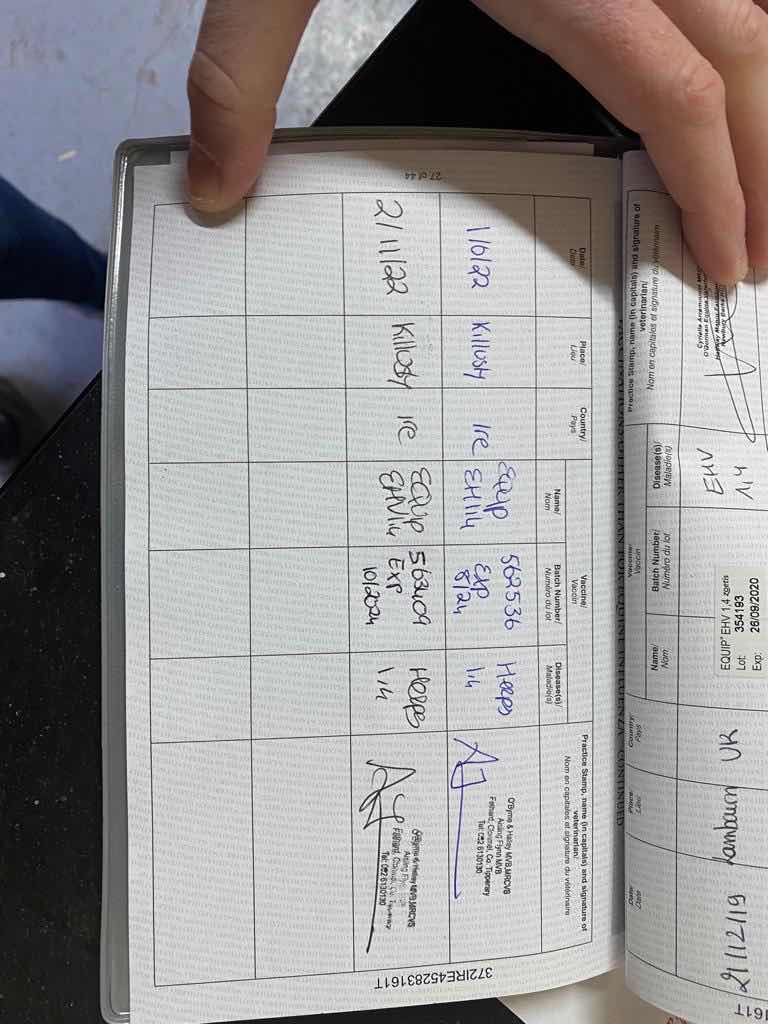 27 of 44
Date/
Date
Place/
Lieu
Country/
Pays
Vaccine/
Vaccin
Name/
Nom
Batch Number/
Numéro du lot
Disease(s)/
Maladie(s)
Practice Stamp, name (in capitals) and signature of
veterinarian/
Nom en capitales et signature du vétérinaire
1/6/22
Killusty
Ire
EQUIP
EHV14
562536
Exp
8/24
Herpes
1,4
O'Byrne & Halley MVB MRCVS
Aisling Flynn MVB
Fethard, Clonmel, Co. Tipperary
Tel: 052 6130130
2/11/22
Killusty
Ire
EQUIP
EHV1,4
563409
Exp
10/2024
Herpes
1,4
O'Byrne & Halley MVB MRCVS
Aisling
Fethard, Clonmel, Co. Tipperary
Tel: 052 6130130
372IRE45283161T
161T
VACCINATIONS OTHER THAN EQUINE INFLUENZA CONTINUED
Date/
Date
Place/
Lieu
Country/
Pays
Vaccine/
Vaccin
Name/
Nom
Batch Number/
Numéro du lot
Disease(s)/
Maladie(s)
Practice Stamp, name (in capitals) and signature of
veterinarian/
Nom en capitales et signature du vétérinaire
21/12/19
Lambourn
UK
EQUIP® EHV 1,4 zoetis
Lot: 354193
Exp: 26/09/2020
EHV
1,4